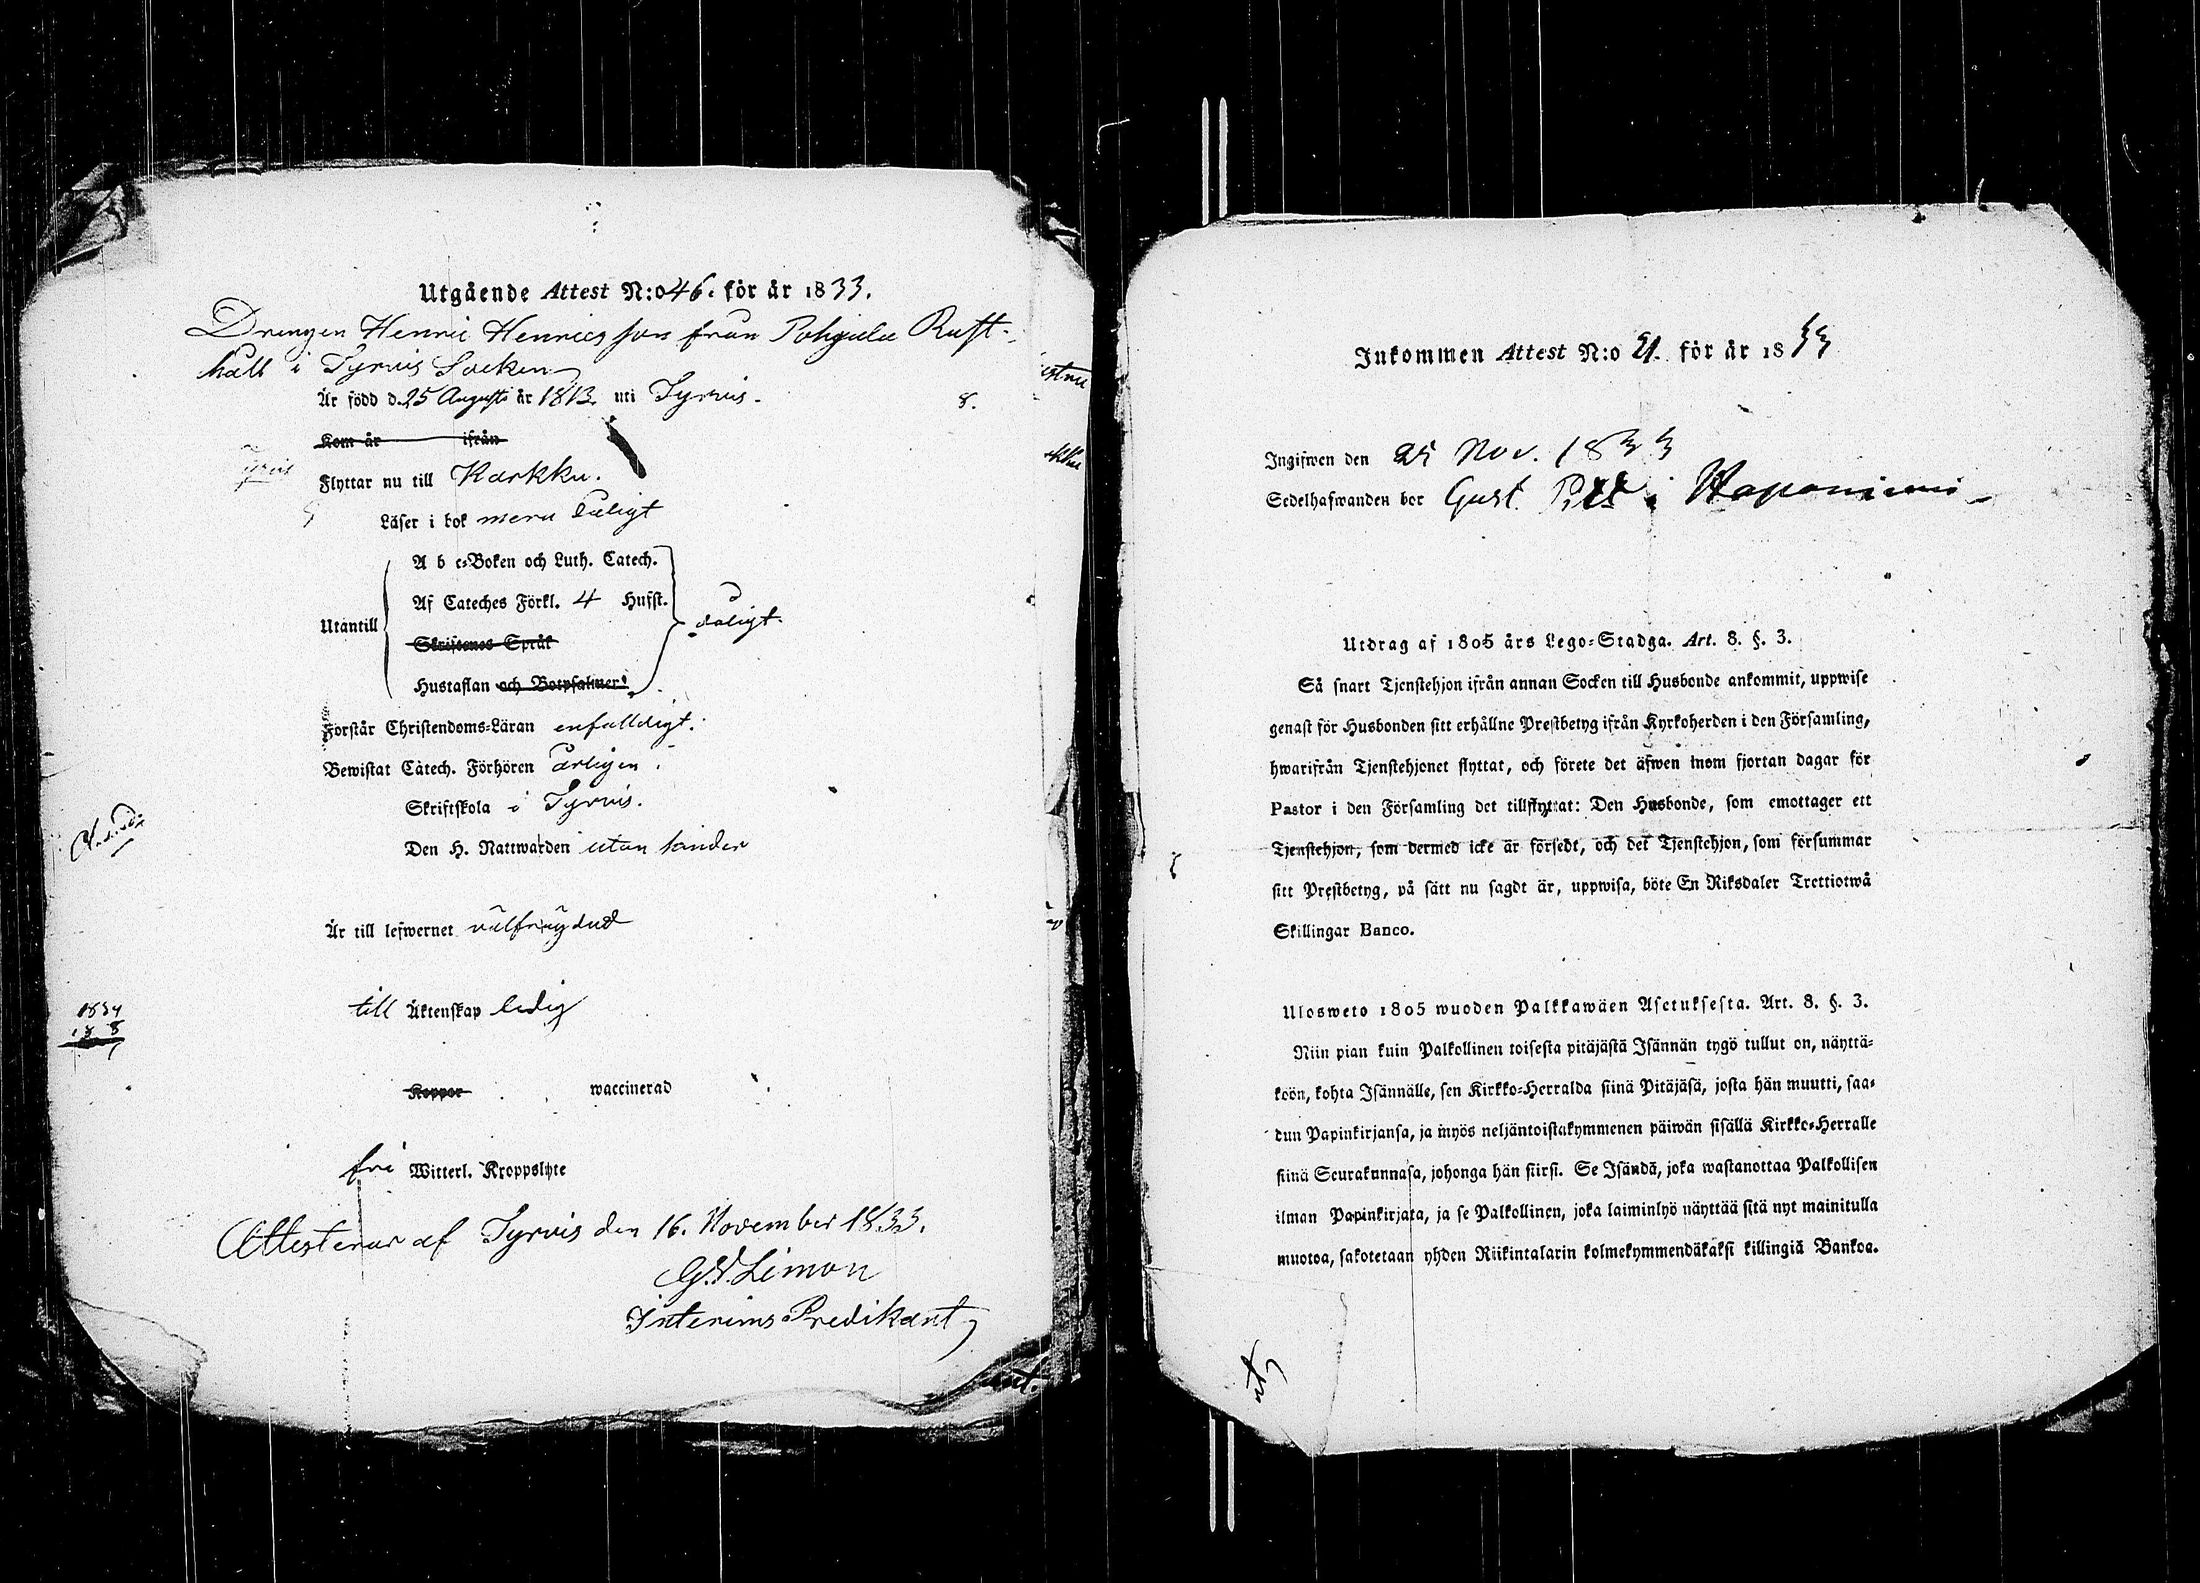 Utgående Attest N:o 46. för år 1833.
Drengen Henric Henricsson från Pohjala Rust-
håll i Tyrvis Socken
Är född d. 25 Augusti år 1813. uti Tyrvis.
Kom år ifrån
Flyttar nu till Karkku.
Läser i bok mera dåligt
A b c-Boken och Luth. Catech.
Af Cateches Förkl. 4 Hufst.
Utantill dåligt.
Skriftenes Språk
Hustaflan och Botpsalmer
Forstår Christendoms-Läran enfalldigt.
Bewistat Catech. Förhören årligen.
Skriftskola i Tyrvis.
Den H. Nattwarden utan hinder
Är till lefwernet välfrägdad
till Äktenskap ledig
1834
Koppor waccinerad
fri Witterl. Kroppslyte
Attesterar af Tyrvis den 16. November 1833.
G. Limon
Interims Predikant
Inkommen Attest N:o 21. för år 1833
Ingifwen den 25 Nov. 1833
Sedelhafwanden bor Gust. i Haponiemi
Utdrag af 1805 års Lego-Stadga. Art. 8. §. 3.
Så snart Tjenstehjon ifrån annan Socken till Husbonde ankommit, uppwise
genast för Husbonden sitt erhållne Prestbetyg ifrån Kyrkoherden i den Församling,
hwarifrån Tjenstehjonet flyttat, och förete det äfwen inom fjortan dagar för
Pastor i den Församling det tillflyttat: Den Husbonde, som emottager ett
Tjenstehjon, som dermed icke är försedt, och det Tjenstehjon, som försummar
sitt Prestbetyg, på sätt nu sagdt är, uppwisa, böte En Riksdaler Trettiotwå
Skillingar Banco.
Ulosweto 1805 wuoden Palkkawäen Asetuksesta. Art. 8. §. 3.
Niin pian kuin Palkollinen toisesta pitäjästä Isännän tygö tullut on, näyttä-
köön, kohta Isännälle, sen Kirkko-Herralda siinä Pitäjäsä, josta hän muutti, saa-
dun Papinkirjansa, ja myös neljäntoistakymmenen päiwän sisällä Kirkko-Herralle
siinä Seurakunnasa, johonga hän siirsi. Se Isändä, joka wastanottaa Palkollisen
ilman Papinkirjata, ja se Palkollinen, joka laiminlyö näyttää sitä nyt mainitulla
muotoa, sakotetaan yhden Riikintalarin kolmekymmendäkaksi killingiä Bankoa.